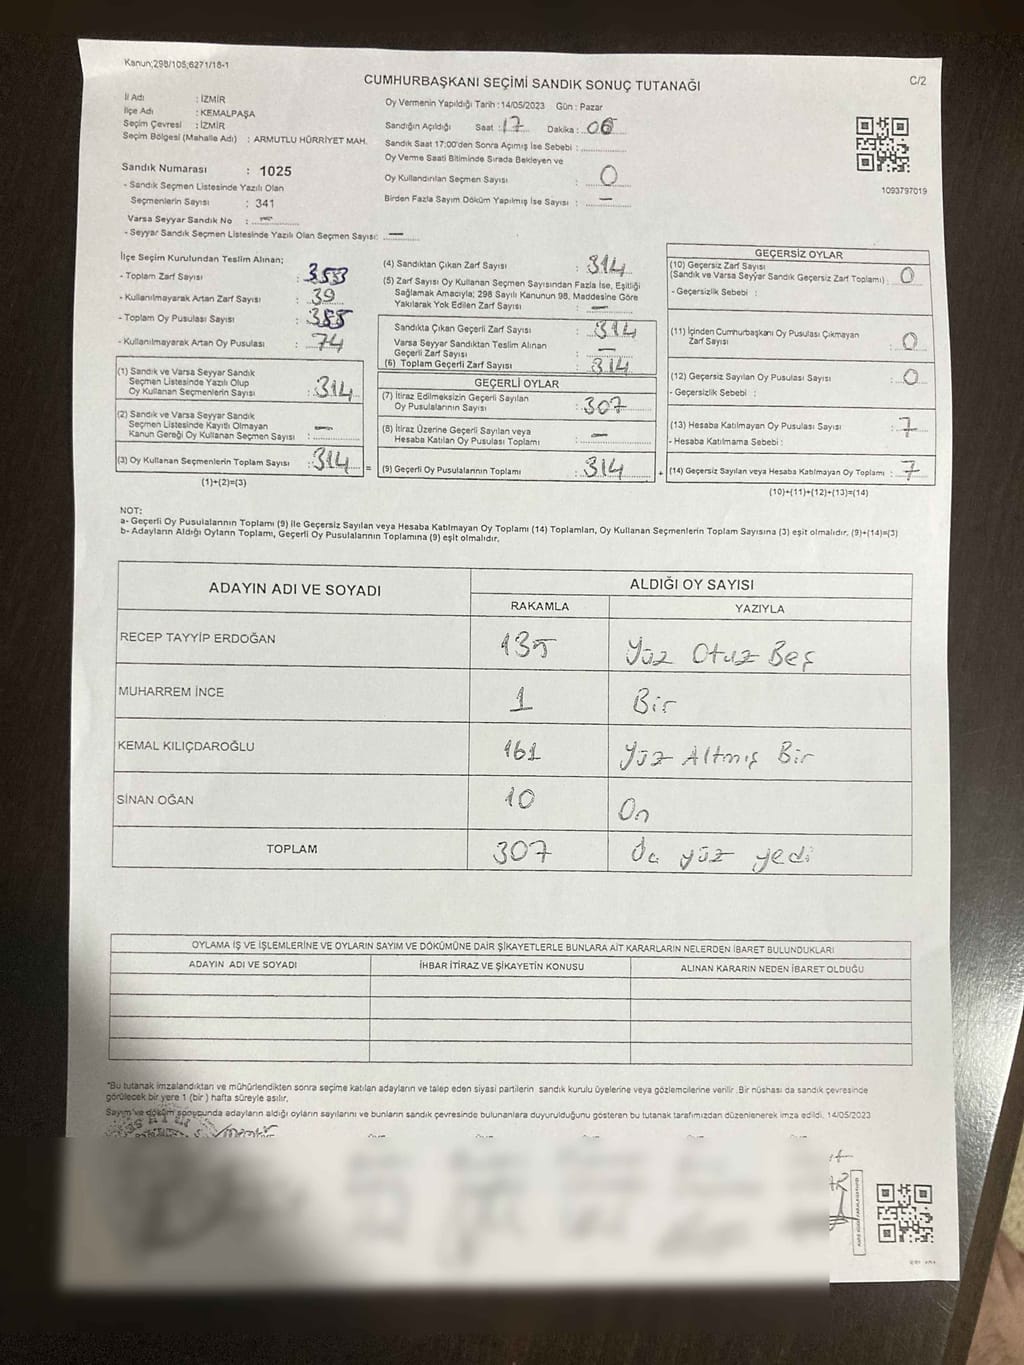 Kanun;298/105;6271/16-1
CUMHURBAŞKANI SEÇİMİ SANDIK SONUÇ TUTANAĞI
C/2
İl Adı : İZMİR
İlçe Adı : KEMALPAŞA
Seçim Çevresi : İZMİR
Seçim Bölgesi (Mahalle Adı) : ARMUTLU HÜRRİYET MAH.
Sandık Numarası : 1025
- Sandık Seçmen Listesinde Yazılı Olan
Seçmenlerin Sayısı : 341
Varsa Seyyar Sandık No : —
- Seyyar Sandık Seçmen Listesinde Yazılı Olan Seçmen Sayısı: —
Oy Vermenin Yapıldığı Tarih : 14/05/2023 Gün : Pazar
Sandığın Açıldığı Saat : 17 Dakika : 06
Sandık Saat 17:00'den Sonra Açımış İse Sebebi :
Oy Verme Saati Bitiminde Sırada Bekleyen ve
Oy Kullandırılan Seçmen Sayısı : 0
Birden Fazla Sayım Döküm Yapılmış İse Sayısı : —
1093797019
İlçe Seçim Kurulundan Teslim Alınan;
- Toplam Zarf Sayısı : 353
- Kullanılmayarak Artan Zarf Sayısı : 39
- Toplam Oy Pusulası Sayısı : 388
- Kullanılmayarak Artan Oy Pusulası : 74
(1) Sandık ve Varsa Seyyar Sandık
Seçmen Listesinde Yazılı Olup
Oy Kullanan Seçmenlerin Sayısı : 314
(2) Sandık ve Varsa Seyyar Sandık
Seçmen Listesinde Kayıtlı Olmayan
Kanun Gereği Oy Kullanan Seçmen Sayısı : —
(3) Oy Kullanan Seçmenlerin Toplam Sayısı : 314
(1)+(2)=(3)
(4) Sandıktan Çıkan Zarf Sayısı : 314
(5) Zarf Sayısı Oy Kullanan Seçmen Sayısından Fazla İse, Eşitliği
Sağlamak Amacıyla; 298 Sayılı Kanunun 98. Maddesine Göre
Yakılarak Yok Edilen Zarf Sayısı : —
Sandıkta Çıkan Geçerli Zarf Sayısı : 314
Varsa Seyyar Sandıktan Teslim Alınan
Geçerli Zarf Sayısı : —
(6) Toplam Geçerli Zarf Sayısı : 314
GEÇERLİ OYLAR
(7) İtiraz Edilmeksizin Geçerli Sayılan
Oy Pusulalarının Sayısı : 307
(8) İtiraz Üzerine Geçerli Sayılan veya
Hesaba Katılan Oy Pusulası Toplamı : —
= (9) Geçerli Oy Pusulalarının Toplamı : 314
GEÇERSİZ OYLAR
(10) Geçersiz Zarf Sayısı
(Sandık ve Varsa Seyyar Sandık Geçersiz Zarf Toplamı) : 0
- Geçersizlik Sebebi :
(11) İçinden Cumhurbaşkanı Oy Pusulası Çıkmayan
Zarf Sayısı : 0
(12) Geçersiz Sayılan Oy Pusulası Sayısı : 0
- Geçersizlik Sebebi :
(13) Hesaba Katılmayan Oy Pusulası Sayısı : 7
- Hesaba Katılmama Sebebi :
+ (14) Geçersiz Sayılan veya Hesaba Katılmayan Oy Toplamı : 7
(10)+(11)+(12)+(13)=(14)
NOT:
a- Geçerli Oy Pusulalarının Toplamı (9) ile Geçersiz Sayılan veya Hesaba Katılmayan Oy Toplamı (14) Toplamları, Oy Kullanan Seçmenlerin Toplam Sayısına (3) eşit olmalıdır. (9)+(14)=(3)
b- Adayların Aldığı Oyların Toplamı, Geçerli Oy Pusulalarının Toplamına (9) eşit olmalıdır.
ADAYIN ADI VE SOYADI ALDIĞI OY SAYISI
RAKAMLA YAZIYLA
RECEP TAYYİP ERDOĞAN 135 Yüz Otuz Beş
MUHARREM İNCE 1 Bir
KEMAL KILIÇDAROĞLU 161 Yüz Altmış Bir
SİNAN OĞAN 10 On
TOPLAM 307 Üç yüz yedi
OYLAMA İŞ VE İŞLEMLERİNE VE OYLARIN SAYIM VE DÖKÜMÜNE DAİR ŞİKAYETLERLE BUNLARA AİT KARARLARIN NELERDEN İBARET BULUNDUKLARI
ADAYIN ADI VE SOYADI İHBAR İTİRAZ VE ŞİKAYETİN KONUSU ALINAN KARARIN NEDEN İBARET OLDUĞU
*Bu tutanak imzalandıktan ve mühürlendikten sonra seçime katılan adayların ve talep eden siyasi partilerin sandık kurulu üyelerine veya gözlemcilerine verilir. Bir nüshası da sandık çevresinde
görülecek bir yere 1 (bir) hafta süreyle asılır.
Sayım ve döküm sonucunda adayların aldığı oyların sayılarını ve bunların sandık çevresinde bulunanlara duyurulduğunu gösteren bu tutanak tarafımızdan düzenlenerek imza edildi. 14/05/2023